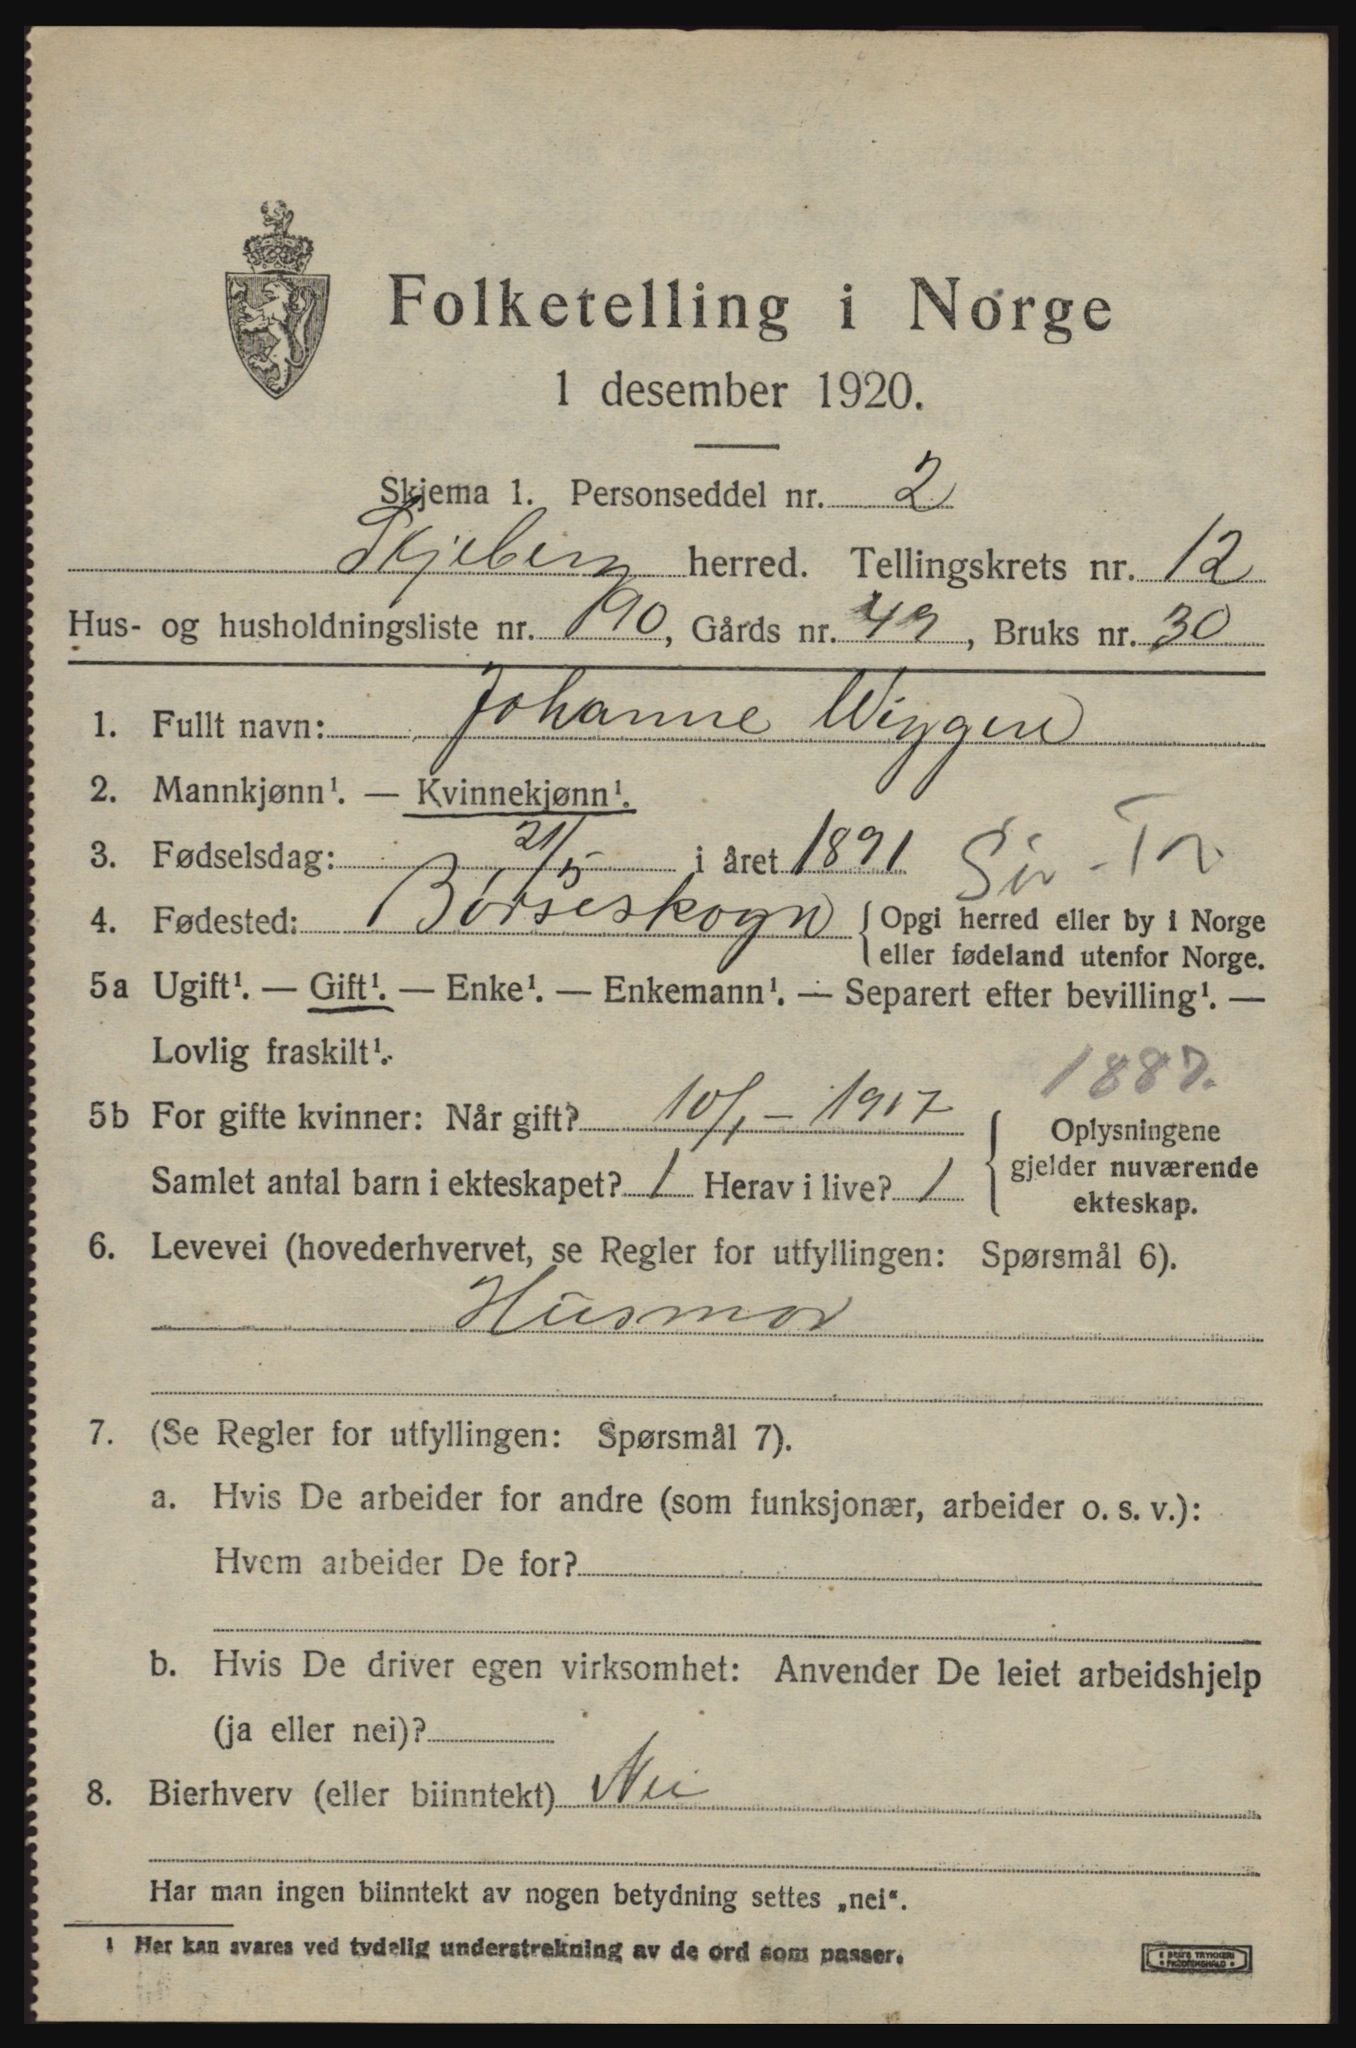 Folketelling i Norge
1 desember 1920.
Skjema 1. Personseddel nr. 2
Skjeberg herred. Tellingskrets nr. 12
Hus- og husholdningsliste nr. 190, Gårds nr. 49, Bruks nr. 30
1. Fullt navn: Johanne Wiggen
2. Mannkjønn¹. — Kvinnekjønn¹.
3. Fødselsdag: 21/5 i året 1891 Sør-Tr.
4. Fødested: Børseskogn {Opgi herred eller by i Norge
eller fødeland utenfor Norge.
5a Ugift¹. — Gift¹. — Enke¹. — Enkemann¹. — Separert efter bevilling¹. —
Lovlig fraskilt¹.
1887.
5b For gifte kvinner: Når gift? 10/1 - 1917
Samlet antal barn i ekteskapet? 1 Herav i live? 1
Oplysningene
gjelder nuværende
ekteskap.
6. Levevei (hovederhvervet, se Regler for utfyllingen: Spørsmål 6).
Husmor
7. (Se Regler for utfyllingen: Spørsmål 7).
a. Hvis De arbeider for andre (som funksjonær, arbeider o. s. v.):
Hvem arbeider De for?
b. Hvis De driver egen virksomhet: Anvender De leiet arbeidshjelp
(ja eller nei)?
8. Bierhverv (eller biinntekt) Nei
Har man ingen biinntekt av nogen betydning settes „nei“.
1 Her kan svares ved tydelig understrekning av de ord som passer.